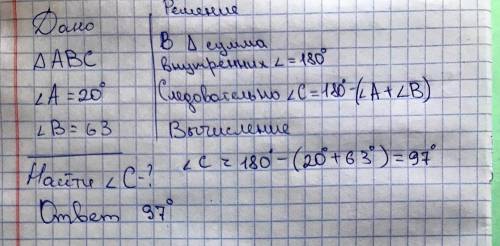 Дано
ΔABC
∠A = 20°
∠B = 63
Найти ∠C - ?
Решение
В Δ сумма
внутренних ∠ = 180°
Следовательно ∠C = 180° - (∠A + ∠B)
Вычисление
∠C = 180° - (20° + 63°) = 97°
Ответ 97°